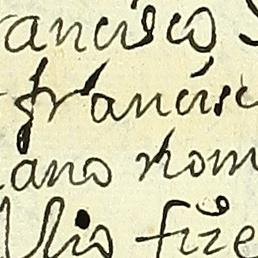 rancisco
francisc
ano rom
llio fize